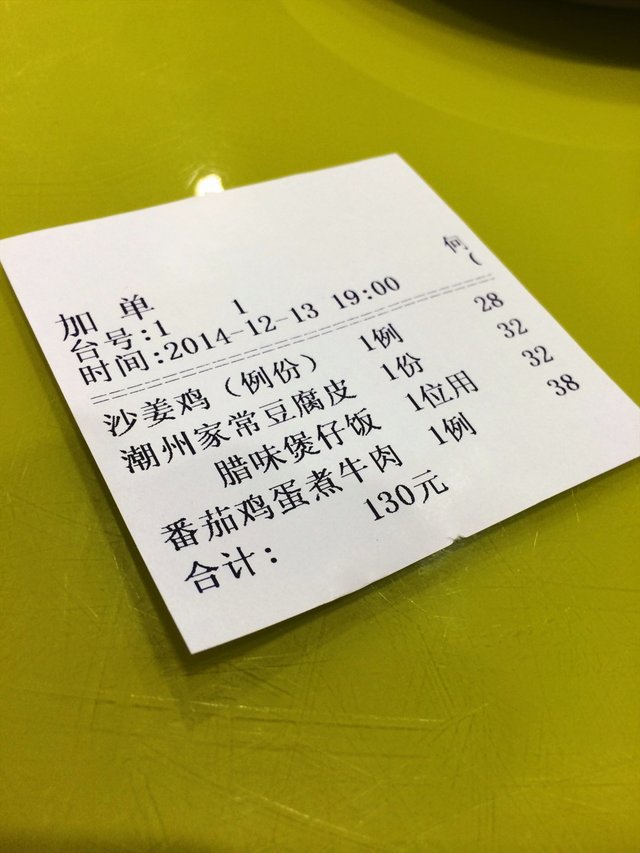 加 单
台号:1 1 何
时间:2014-12-13 19:00 (
沙姜鸡（例份） 1例 28
潮州家常豆腐皮 1份 32
腊味煲仔饭 1位用 32
番茄鸡蛋煮牛肉 1例 38
合计: 130元